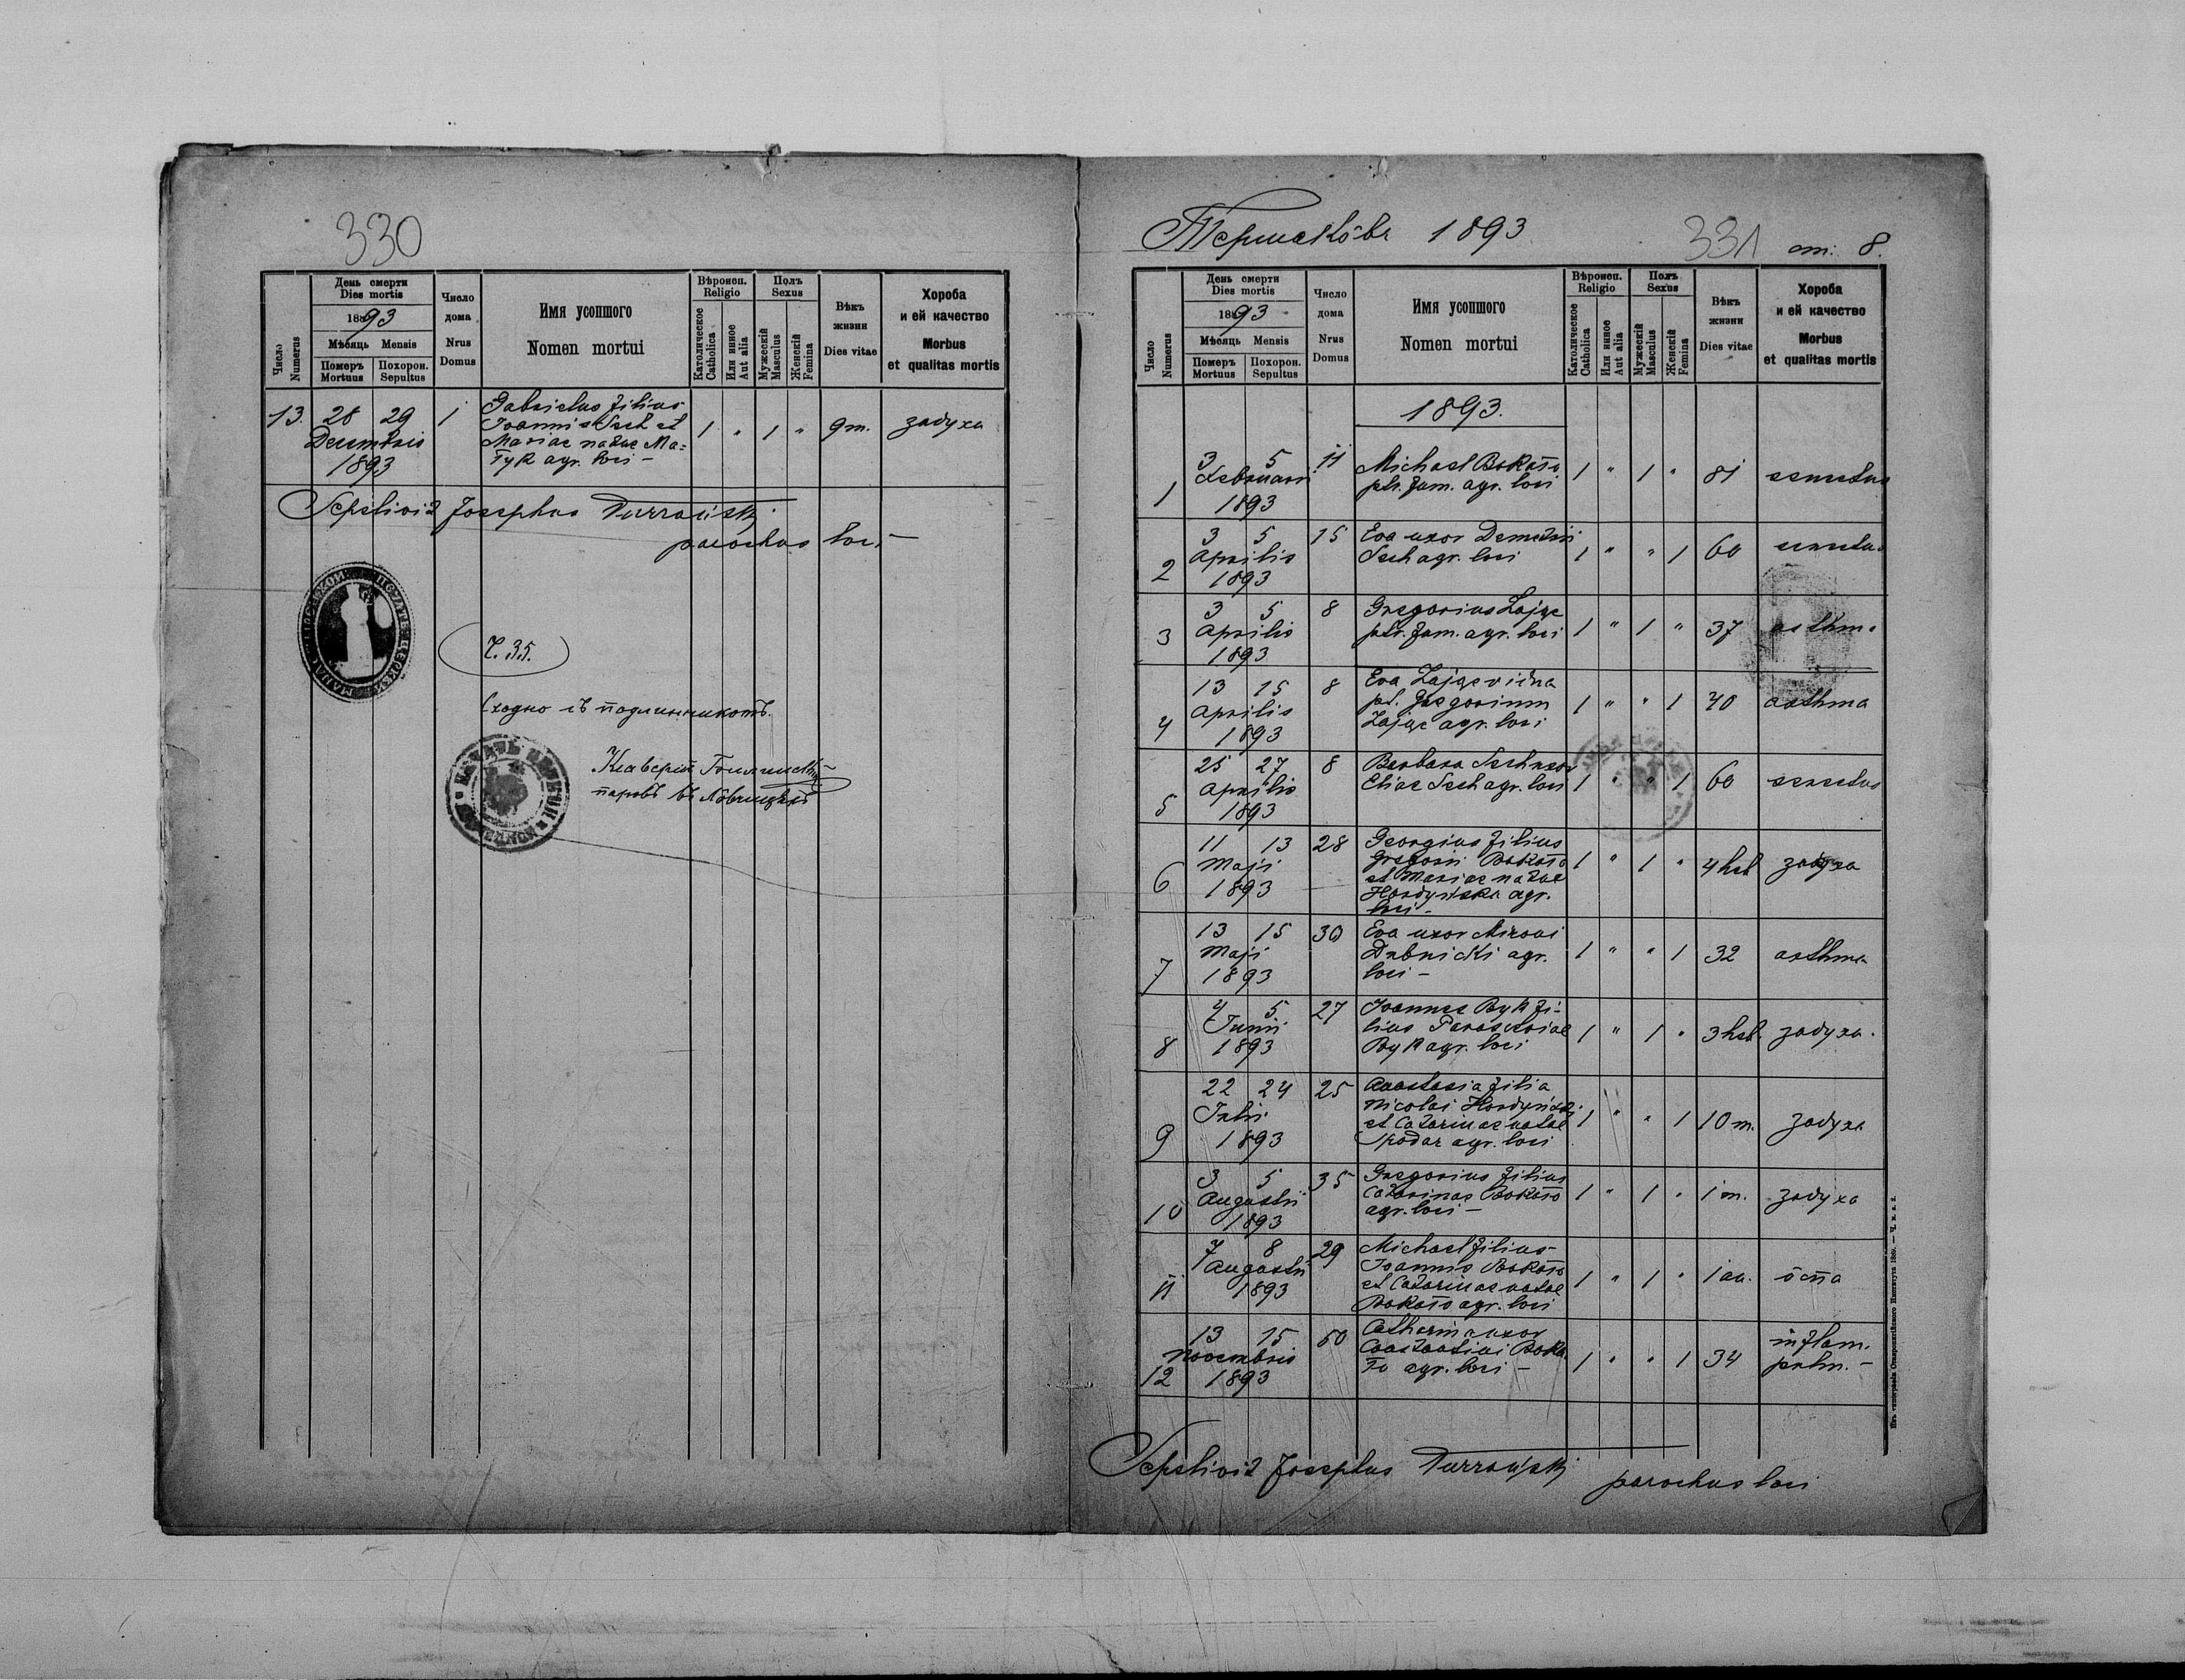 330
Число
Numerus
День смерти
Dies mortis
1893
Мѣсяць Mensis
Померъ
Mortuus
Похорон.
Sepultus
Число
дома
Nrus
Domus
Имя усопшого
Nomen mortui
Вѣроисп.
Religio
Католическое
Catholica
Или инное
Aut alia
Полъ
Sexus
Мужескій
Masculus
Женскій
Femina
Вѣкъ
жизни
Dies vitae
Хороба
и ей качество
Morbus
et qualitas mortis
13. 28 29 1 Gabrielus filius
Decembris Joannis Sech et 1 " 1 " 9 m. задуха
1893 Mariae natae Ma-
tyk agr. loci –
Sepelivit Josephus
parochus loci –
Ч. 35.
Сходно съ подлинникомъ.
парохъ въ
Першаковъ 1893 331 ст. 8.
Число
Numerus
День смерти
Dies mortis
1893
Мѣсяць Mensis
Померъ
Mortuus
Похорон.
Sepultus
Число
дома
Nrus
Domus
Имя усопшого
Nomen mortui
Вѣроисп.
Religio
Католическое
Catholica
Или инное
Aut alia
Полъ
Sexus
Мужескій
Masculus
Женскій
Femina
Вѣкъ
жизни
Dies vitae
Хороба
и ей качество
Morbus
et qualitas mortis
1893.
3 5 11 Michael Bokało
1 Februarii ptr. fam. agr. loci 1 " 1 " 81 senectus
1893
3 5 15 Eva uxor Demetrii
2 Aprilis Sech agr. loci 1 " " 1 60 senectus
1893
3 5 8 Gregorius Zając
3 Aprilis ptr. fam. agr. loci 1 " 1 " 37 asthma
1893
13 15 8 Eva Zając vidua
4 Aprilis pt. Gregorium 1 " " 1 40 asthma
1893 Zając agr. loci
25 27 8 Barbara Sech uxor
5 Aprilis Eliae Sech agr. loci 1 " " 1 60 senectus
1893
11 13 28 Georgius filius
6 Maji Gregorii Bokało 1 " 1 " 4 heb задуха
1893 et Mariae natae
Hordyńska agr.
loci –
13 15 30 Eva uxor Mironi
7 Maji Dubnicki agr. 1 " " 1 32 asthma
1893 loci –
4 5 27 Joannes Byk fi-
8 Junii lius Parasceviae 1 " 1 " 3 heb. задуха.
1893 Byk agr. loci
22 24 25 Anastasia filia
9 Julii Nicolai Hordyński 1 " " 1 10 m. задуха
1893 et Catarinae natae
Spodar agr. loci
3 5 35 Gregorius filius
10 Augustii Catarinae Bokało 1 " 1 " 1 m. задуха
1893 agr. loci –
7 8 29 Michael filius
11 Augustii Joannis Bokało 1 " 1 " 1 an. ôспа
1893 et Catarinae natae
Bokało agr. loci
13 15 50 Catharina uxor
12 Novembris Constantini Boka- 1 " " 1 34 inflam.
1893 ło agr. loci – pulm. –
Sepelivit Josephus
parochus loci